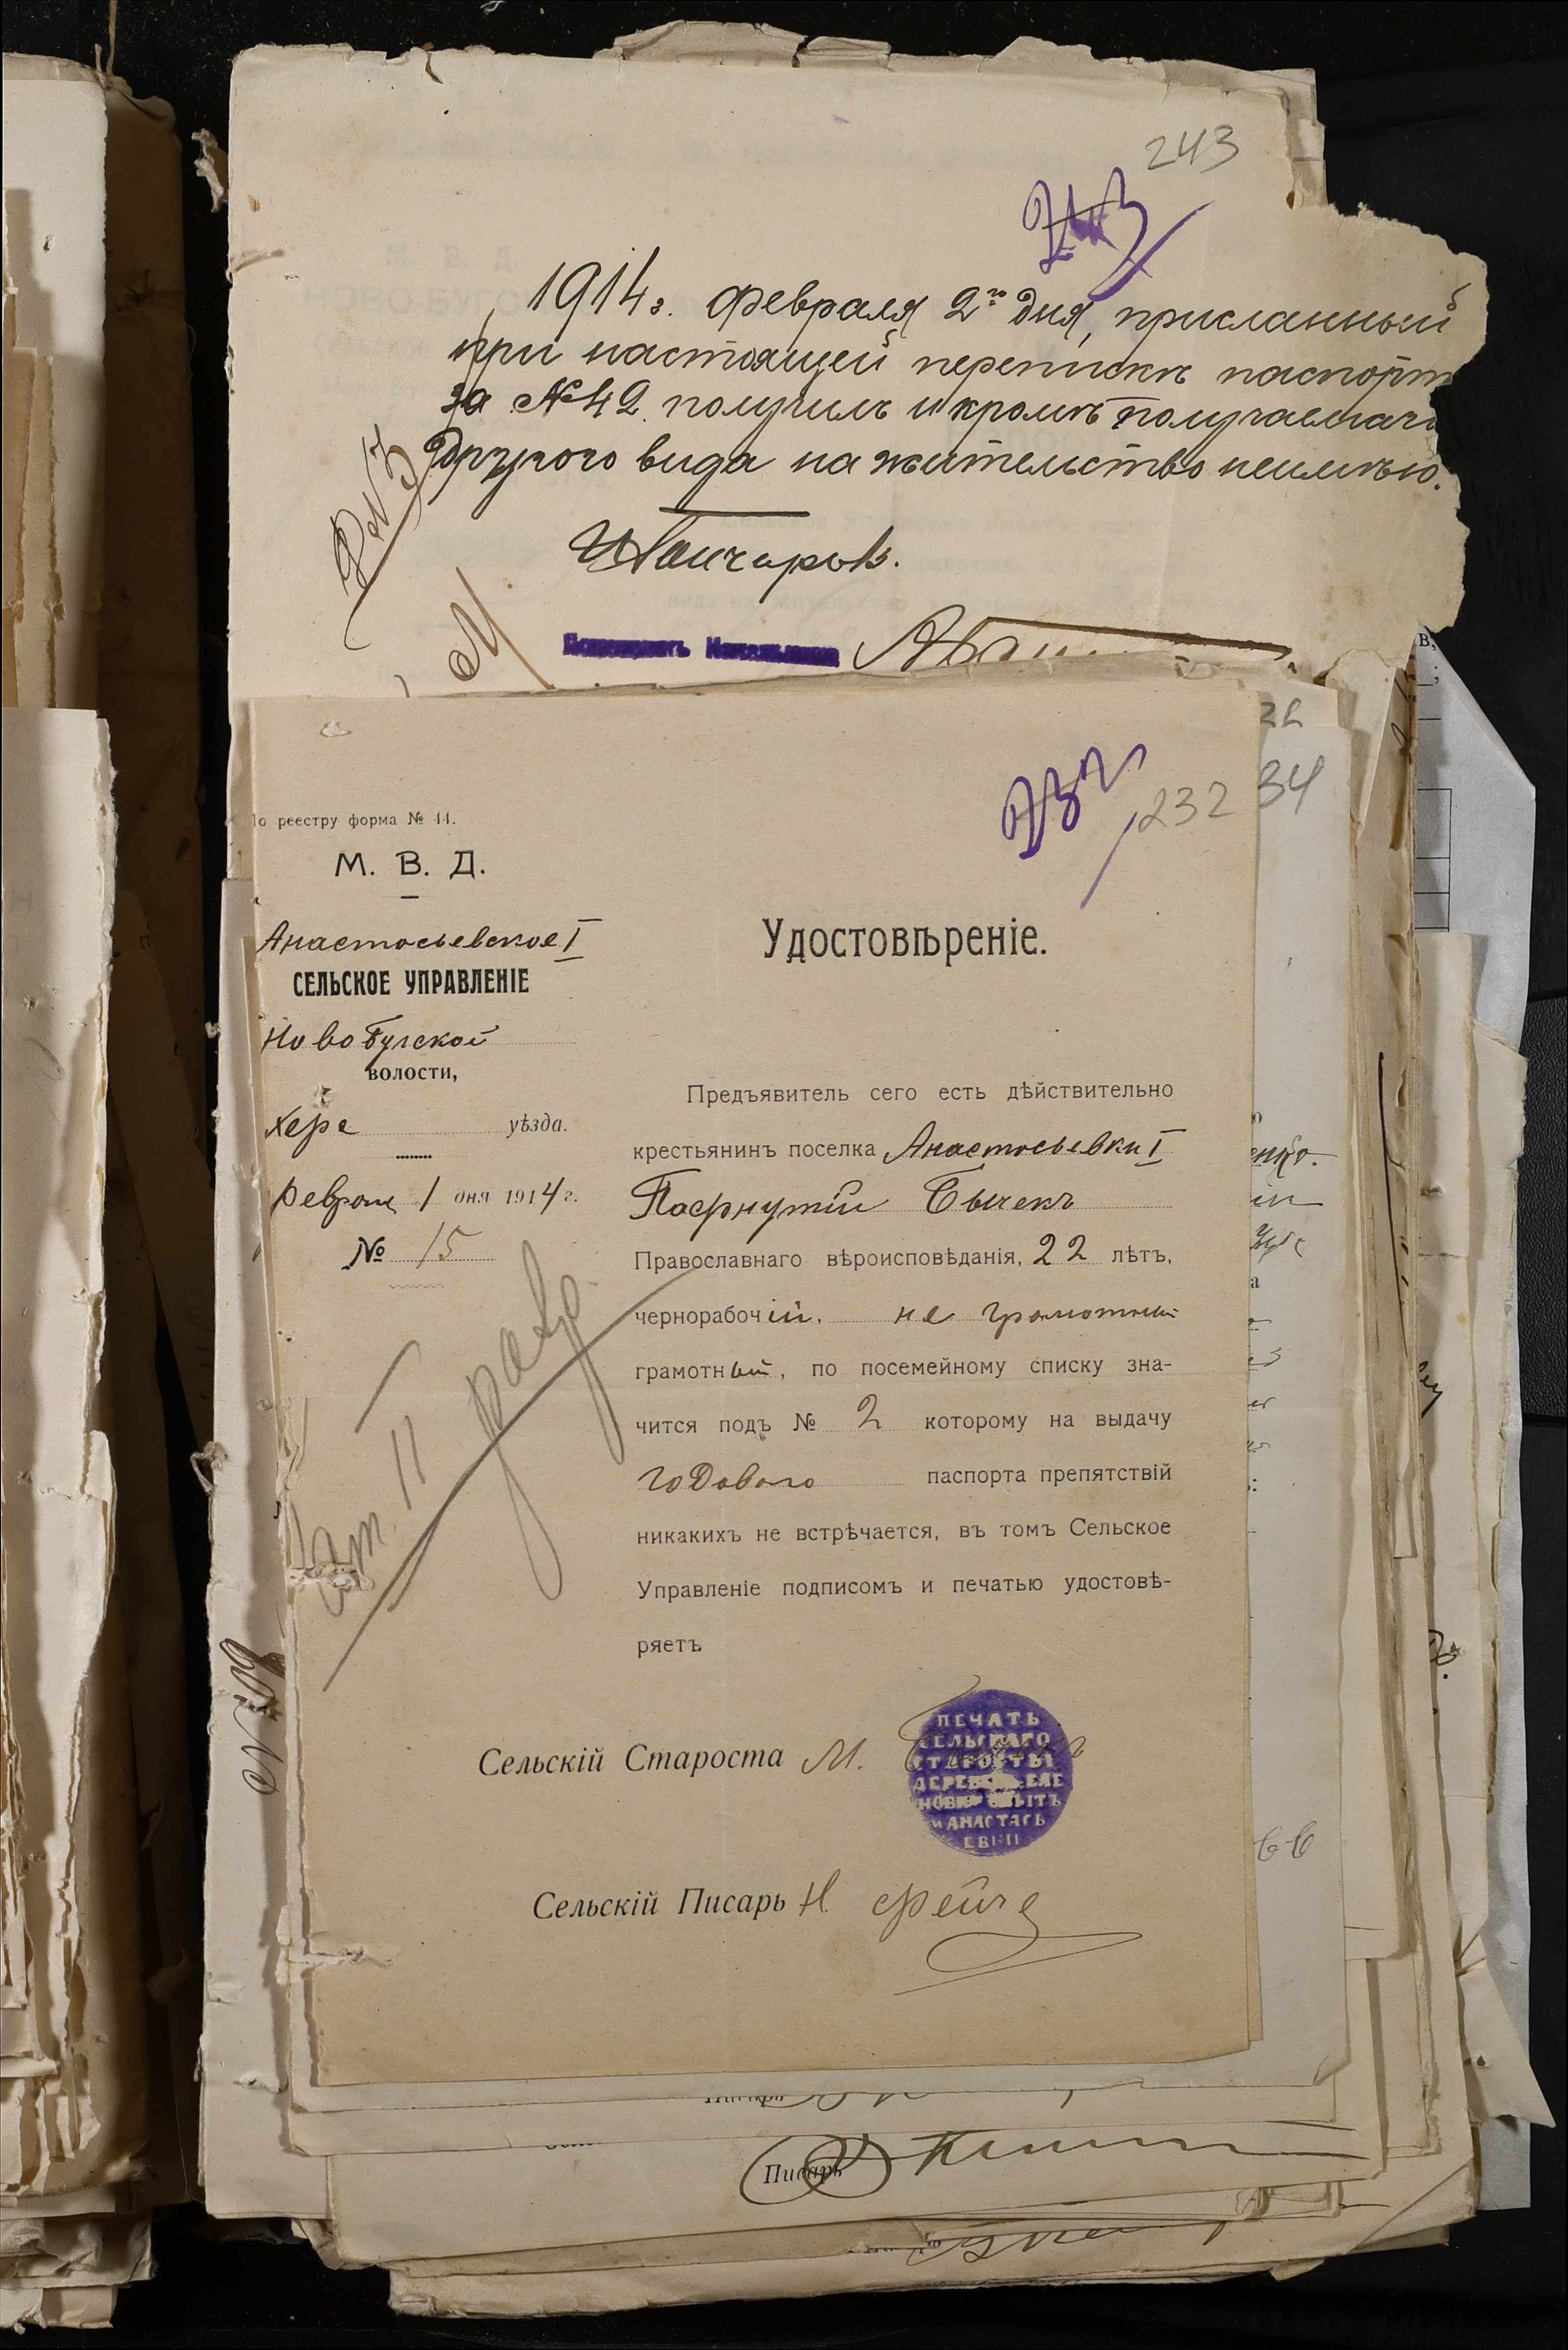 243
243
1914 г. Февраля 2го дня, присланный
при настоящей перепискѣ паспорт
за № 42 получилъ и кромѣ получаемаго
другого вида на жительство неимѣю.
232
232
34
По реестру форма № 44.
М. В. Д.
Анастосьевское I
СЕЛЬСКОЕ УПРАВЛЕНІЕ
Ново Бугской
волости,
Херс уѣзда.
Февраля 1 дня 1914 г.
№ 15
Удостовѣреніе.
Предъявитель сего есть дѣйствительно
крестьянинъ поселка Анастосьевки I
Пафнутій Бычекъ
Православнаго вѣроисповѣданія, 22 лѣтъ,
чернорабочій, не грамотный
грамотный, по посемейному списку зна-
чится подъ № 2 которому на выдачу
годового паспорта препятствій
никакихъ не встрѣчается, въ томъ Сельское
Управленіе подписомъ и печатью удостовѣ-
ряетъ
Сельскій Староста М.
ПЕЧАТЬ
СЕЛЬСКАГО
СТАРОСТЫ
АНАСТАСЬ
ЕВКИ
Сельскій Писарь Н
Писарь